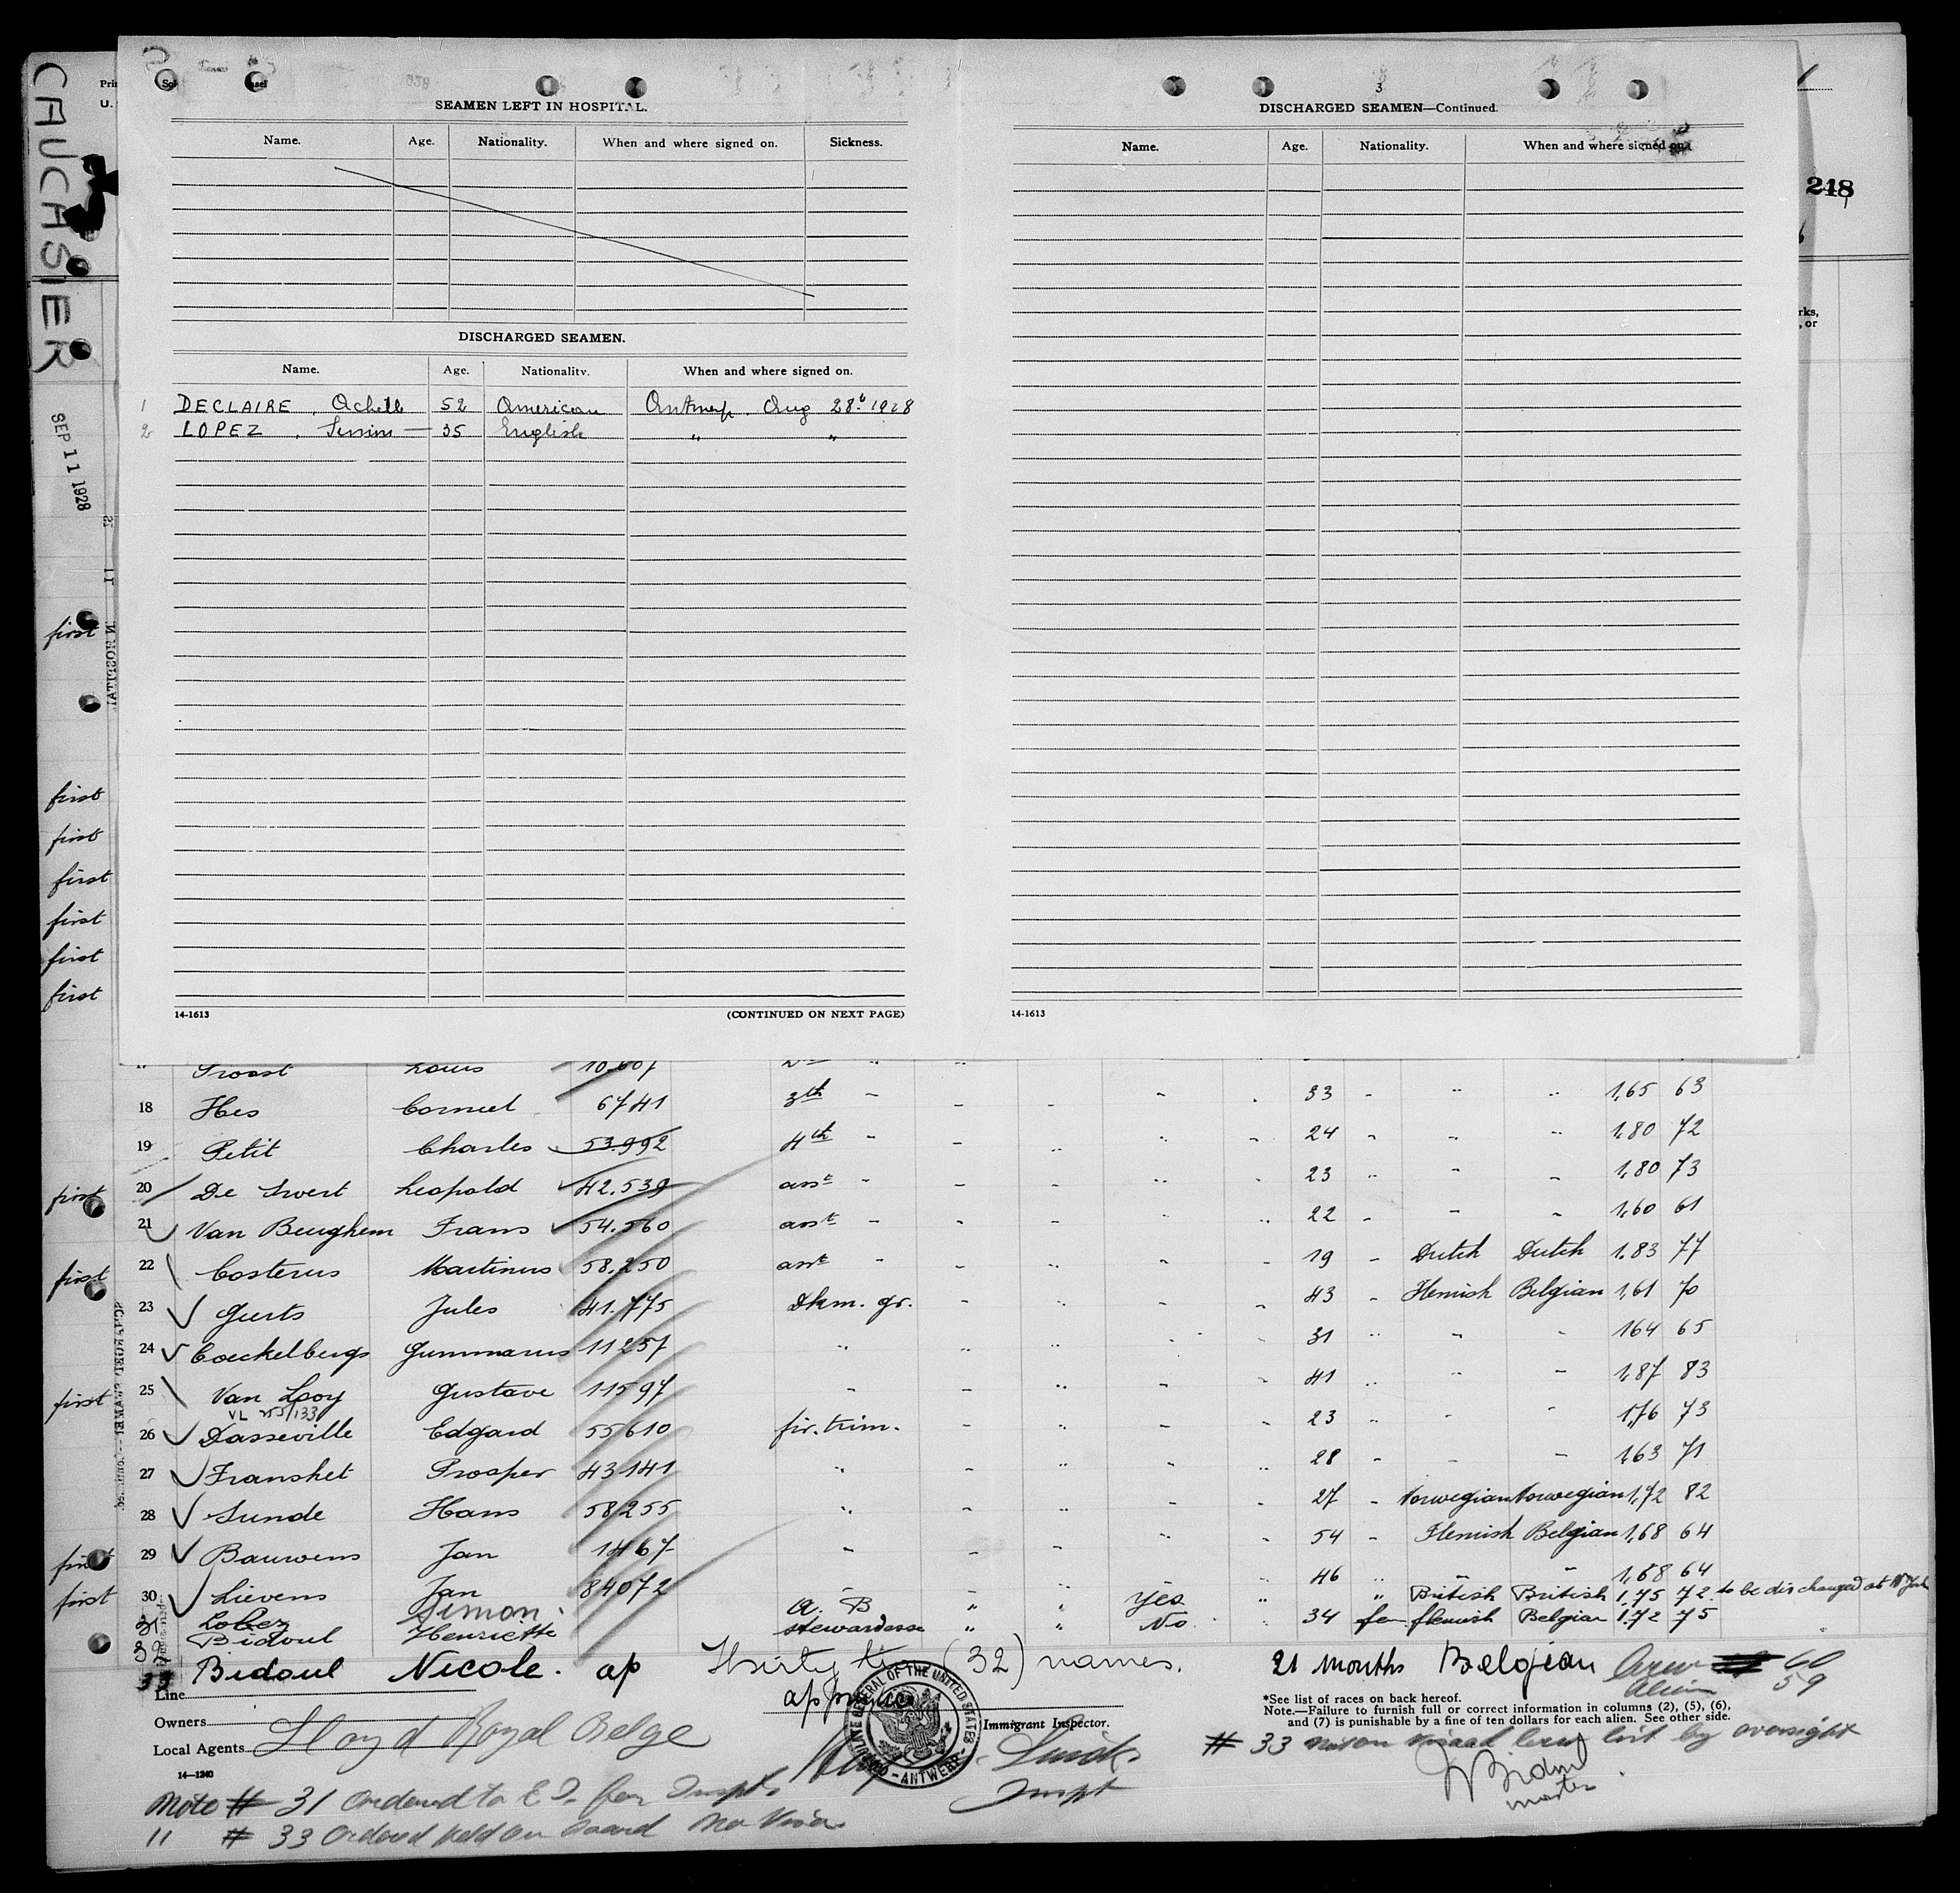 CAUCASIER
SEP 11 1928
SEAMEN LEFT IN HOSPITAL.
Name. Age. Nationality. When and where signed on. Sickness.
DISCHARGED SEAMEN.
Name. Age. Nationality. When and where signed on.
1 DECLAIRE, Achille 52 American Antwerp. Aug 28th 1928
2 LOPEZ, — 35 English " "
14-1613 (CONTINUED ON NEXT PAGE)
3
DISCHARGED SEAMEN—Continued.
Name. Age. Nationality. When and where signed on.
14-1613
248
rks,
, or
first
first
first
first
first
first
first
Proost Louis 10.607
18 Hes Corneel 6741 3th
33 1,65 63
19 Petit Charles 53.992 4th
24 1,80 72
first 20 De Swert Leopold 42.539 asst
23 1,80 73
21 Van Beughem Frans 54.560 asst
22 1,60 61
first 22 Costerus Martinus 58.250 asst
19 Dutch Dutch 1,83 77
23 Geerts Jules 41.775 Dkm. gr.
43 Flemish Belgian 1,61 70
24 Coeckelbergs Gummarus 11257
31 164 65
first 25 Van Looy Gustave 11597
41 1,87 83
VL 255/133
26 Dasseville Edgard 55610 fir. trim.
23 1,76 73
27 Franshet Prosper 43141
28 1,63 71
28 Sunde Hans 58255
27 Norwegian Norwegian 1,72 82
first 29 Bauwens Jan 1467
54 Flemish Belgian 1,68 64
first 30 Lievens Jan 84072
46 1,68 64
31 Lobez Simon A. B " " Yes " British British 1,75 72 to be discharged at N York
32 Bidoul Henriette stewardesse " " No 34 fem flemish Belgian 1.72 75
33 Bidoul Nicole. Thirty two (32) names. 21 months Belgian Crew 60
Alien 59
Line
Owners
Local Agents Lloyd Royal Belge
14—1240
Immigrant Inspector.
Inspt
*See list of races on back hereof.
Note.—Failure to furnish full or correct information in columns (2), (5), (6),
and (7) is punishable by a fine of ten dollars for each alien. See other side.
# 33 not on visaed crew list by oversight
Bidoul
master
Note # 31 ordered to E I. for Inspt.
11 # 33 Ordered held on board no Visa